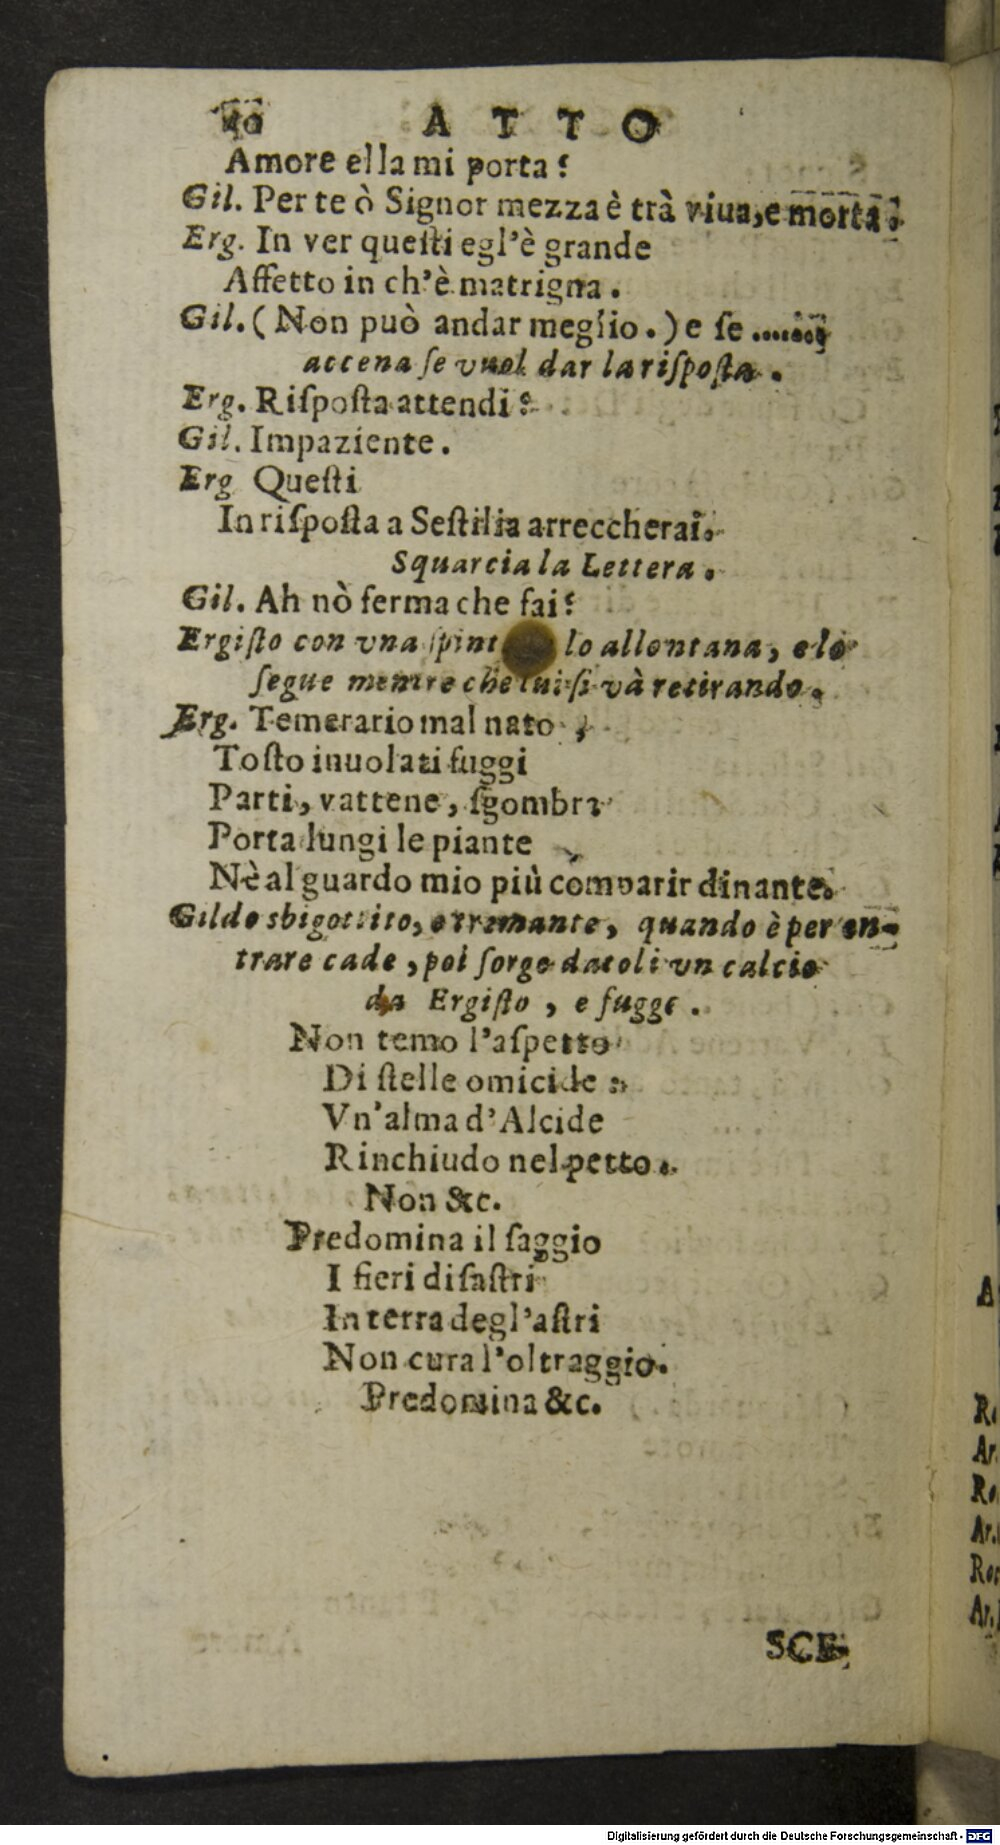 40 ATTO
Amore ella mi porta?
Gil. Per te ò Signor mezza è trà viua, e morta.
Erg. In ver questi egl'è grande
Affetto in ch'è matrigna.
Gil. (Non può andar meglio.) e ſe .......
accena ſe vuol dar la riſpoſta.
Erg. Riſpoſta attendi?
Gil. Impaziente.
Erg Queſti
In riſpoſta a Seſtilia arreccherai.
Squarcia la Lettera.
Gil. Ah nò ferma che fai?
Ergiſto con vna ſpint lo allontana, e lo
ſegue mentre che lui ſi và retirando.
Erg. Temerario mal nato,
Toſto inuolati fuggi
Parti, vattene, ſgombra
Porta lungi le piante
Nè al guardo mio più comparir dinante.
Gildo sbigottito, e tremante, quando è per en-
trare cade, poi ſorge datoli vn calcio
da Ergiſto, e fugge.
Non temo l'aſpetto
Di ſtelle omicide
Vn'alma d'Alcide
Rinchiudo nel petto.
Non &c.
Predomina il ſaggio
I fieri diſaſtri
In terra degl'aſtri
Non cura l'oltraggio.
Predomina &c.
SCE-
A
Ro
Ar.
Ro.
Ar.
Ro
Ar.
Digitalisierung gefördert durch die Deutsche Forschungsgemeinschaft - DFG